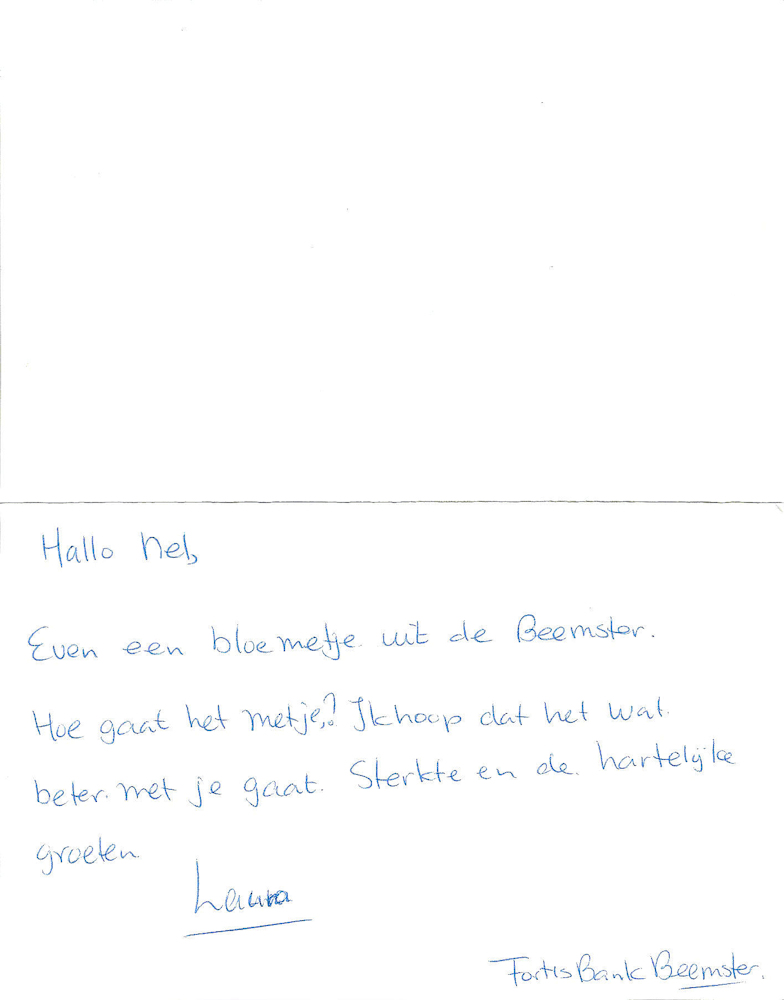 Hallo Nel,
Even een bloemetje uit de Beemster.
Hoe gaat het met je? Ik hoop dat het wat
beter met je gaat. Sterkte en de hartelijke
groeten
Laura
Fortis Bank Beemster.